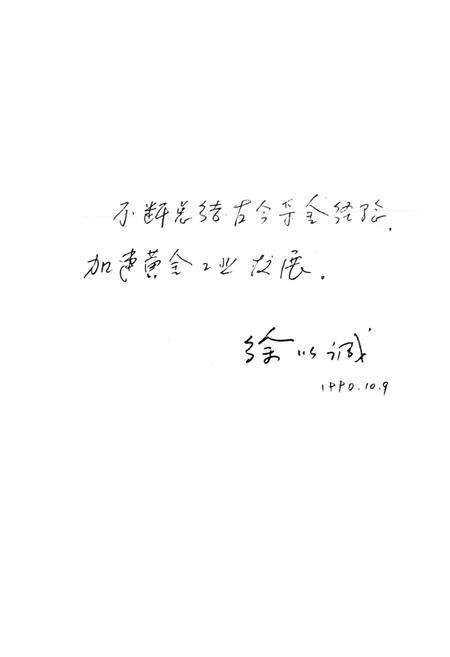 不断总结古今采金经验，
加速黄金工业发展。
徐以诚
1990.10.9